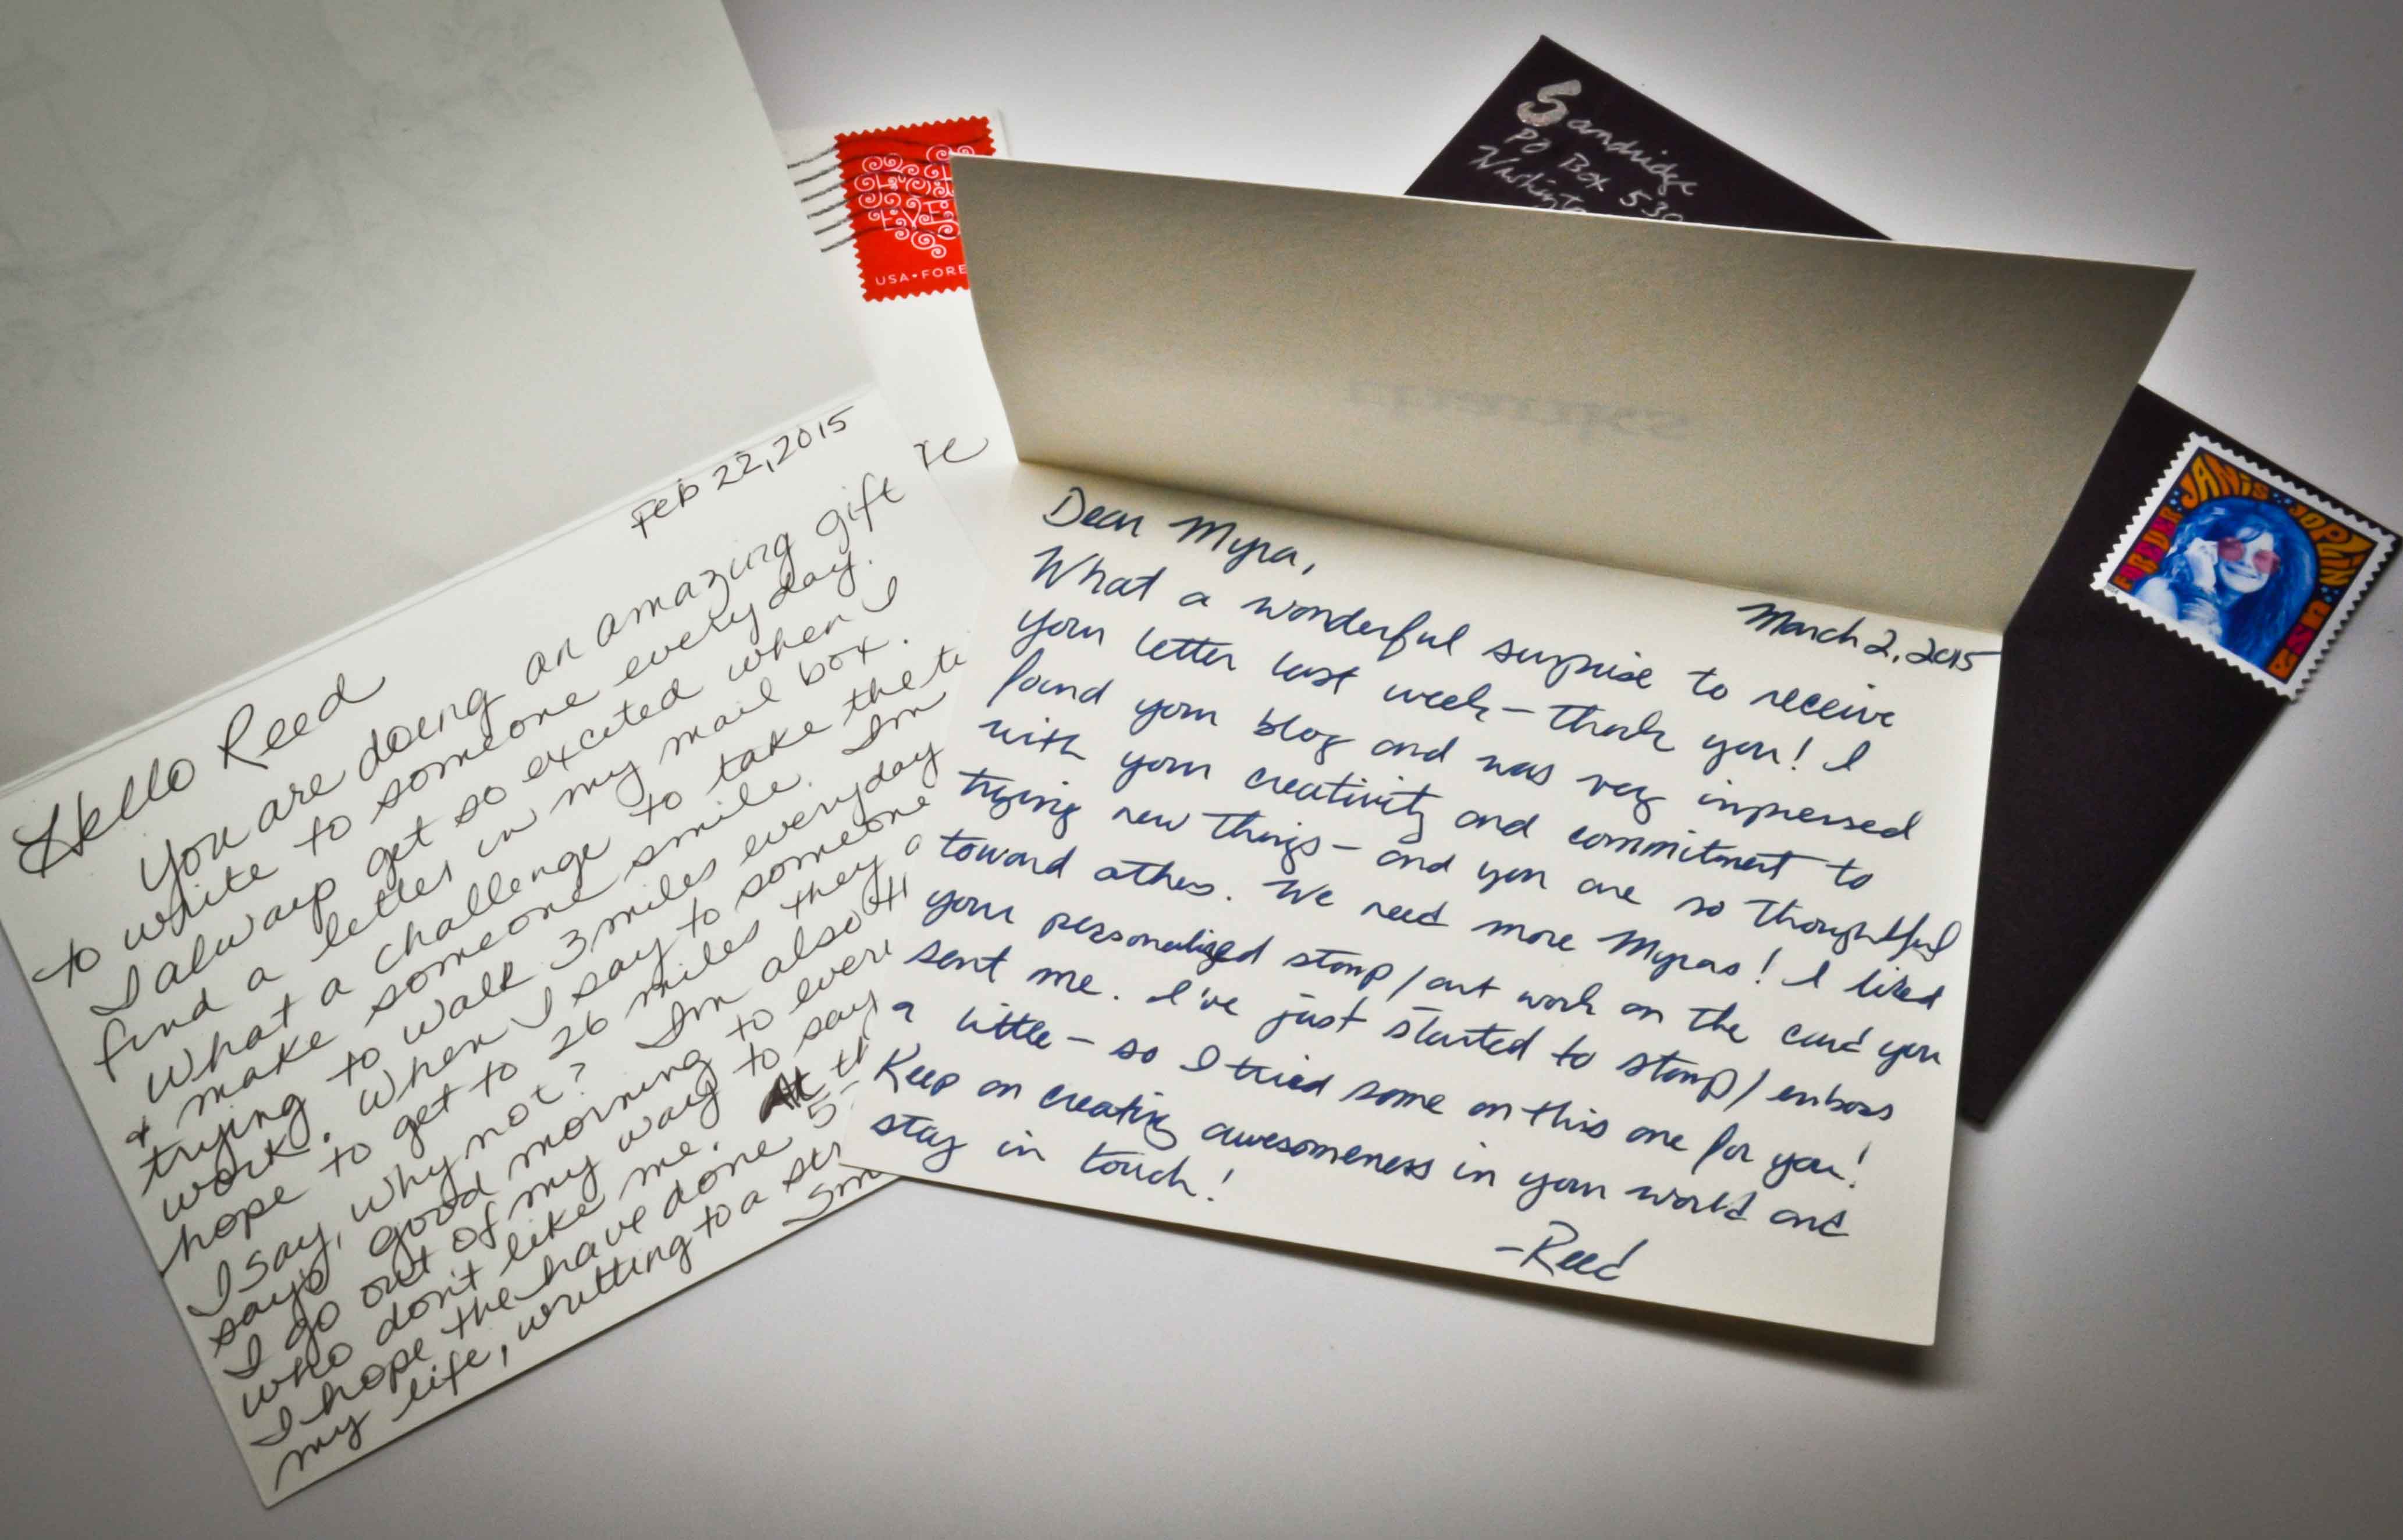 Feb 22, 2015
Hello Reed
You are doing an amazing gift
to write to someone everyday.
I alwarp get so excited when I
find a letter in my mail box.
What a challenge to take the
& make someone smile. Im
trying to walk 3 miles everyday
work. When I say to someone
hope to get to 26 miles they
I say, why not? Im also
says good morning to
I go out of my way to say
who don't like me. At
I hope the have done 5
my life, writting to a
USA FORE
Sandridge
PO Box 530
March 2, 2015
Dear Myra,
What a wonderful surprise to receive
your letter last week - thank you! I
found your blog and was very impressed
with your creativity and commitment to
trying new things - and you are so thoughtful
toward others. We need more Myras! I liked
your personalized stamp/art work on the card you
sent me. I've just started to stamp/emboss
a little - so I tried some on this one for you!
Keep on creating awesomeness in your world and
stay in touch!
-Reed
JANIS JOPLIN
FOREVER
USA